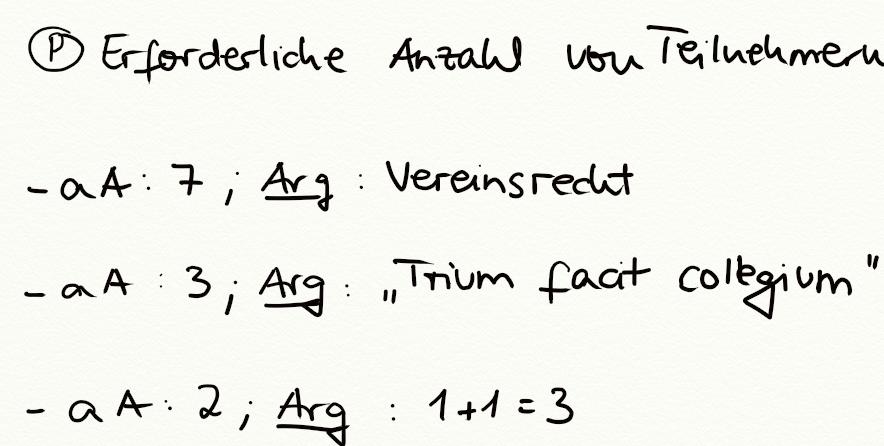 Ⓟ Erforderliche Anzahl von Teilnehmern
- aA: 7; Arg: Vereinsrecht
- aA: 3; Arg: „Trium facit collegium"
- aA: 2; Arg: 1+1=3